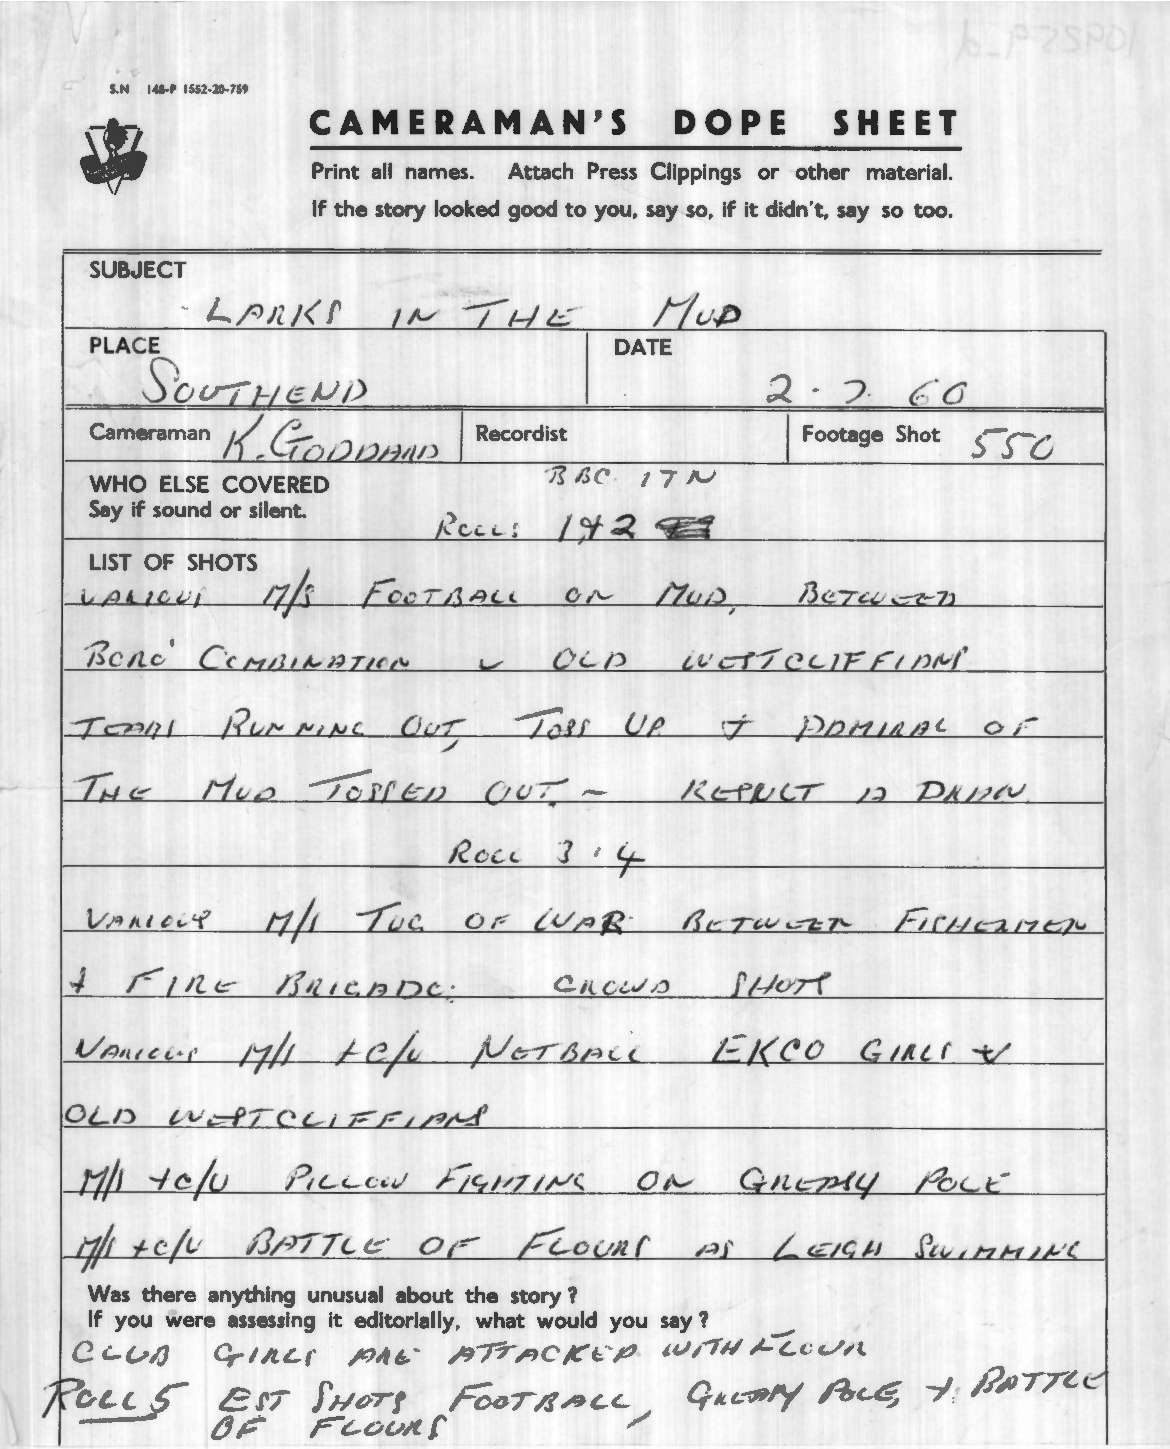 S.N 148-P 1552-20-759
CAMERAMAN'S DOPE SHEET
Print all names. Attach Press Clippings or other material.
If the story looked good to you, say so, if it didn't, say so too.
SUBJECT
LARKS IN THE MUD
PLACE
SOUTHEND
DATE
2.7.60
Cameraman K. GODDARD
Recordist
Footage Shot 550
WHO ELSE COVERED BBC ITN
Say if sound or silent.
ROLLS 1+2
LIST OF SHOTS
VARIOUS M/S FOOTBALL ON MUD, BETWEEN
BORO' COMBINATION v OLD WESTCLIFFIANS
TEAMS RUNNING OUT, TOSS UP + ADMIRAL OF
THE MUD TOSSED OUT. - RESULT A DRAW
ROLL 3.4
VARIOUS M/S TUG OF WAR BETWEEN FISHERMEN
+ FIRE BRIGADE: CROWD SHOTS
VARIOUS M/S + C/U NETBALL EKCO GIRLS v
OLD WESTCLIFFIANS
M/S + C/U PILLOW FIGHTING ON GREASY POLE
M/S + C/U BATTLE OF FLOURS AS LEIGH SWIMMING
Was there anything unusual about the story?
If you were assessing it editorially, what would you say?
CLUB GIRLS ARE ATTACKED WITH FLOUR
ROLL 5 EST SHOTS FOOTBALL, GREASY POLE, + BATTLE
OF FLOURS